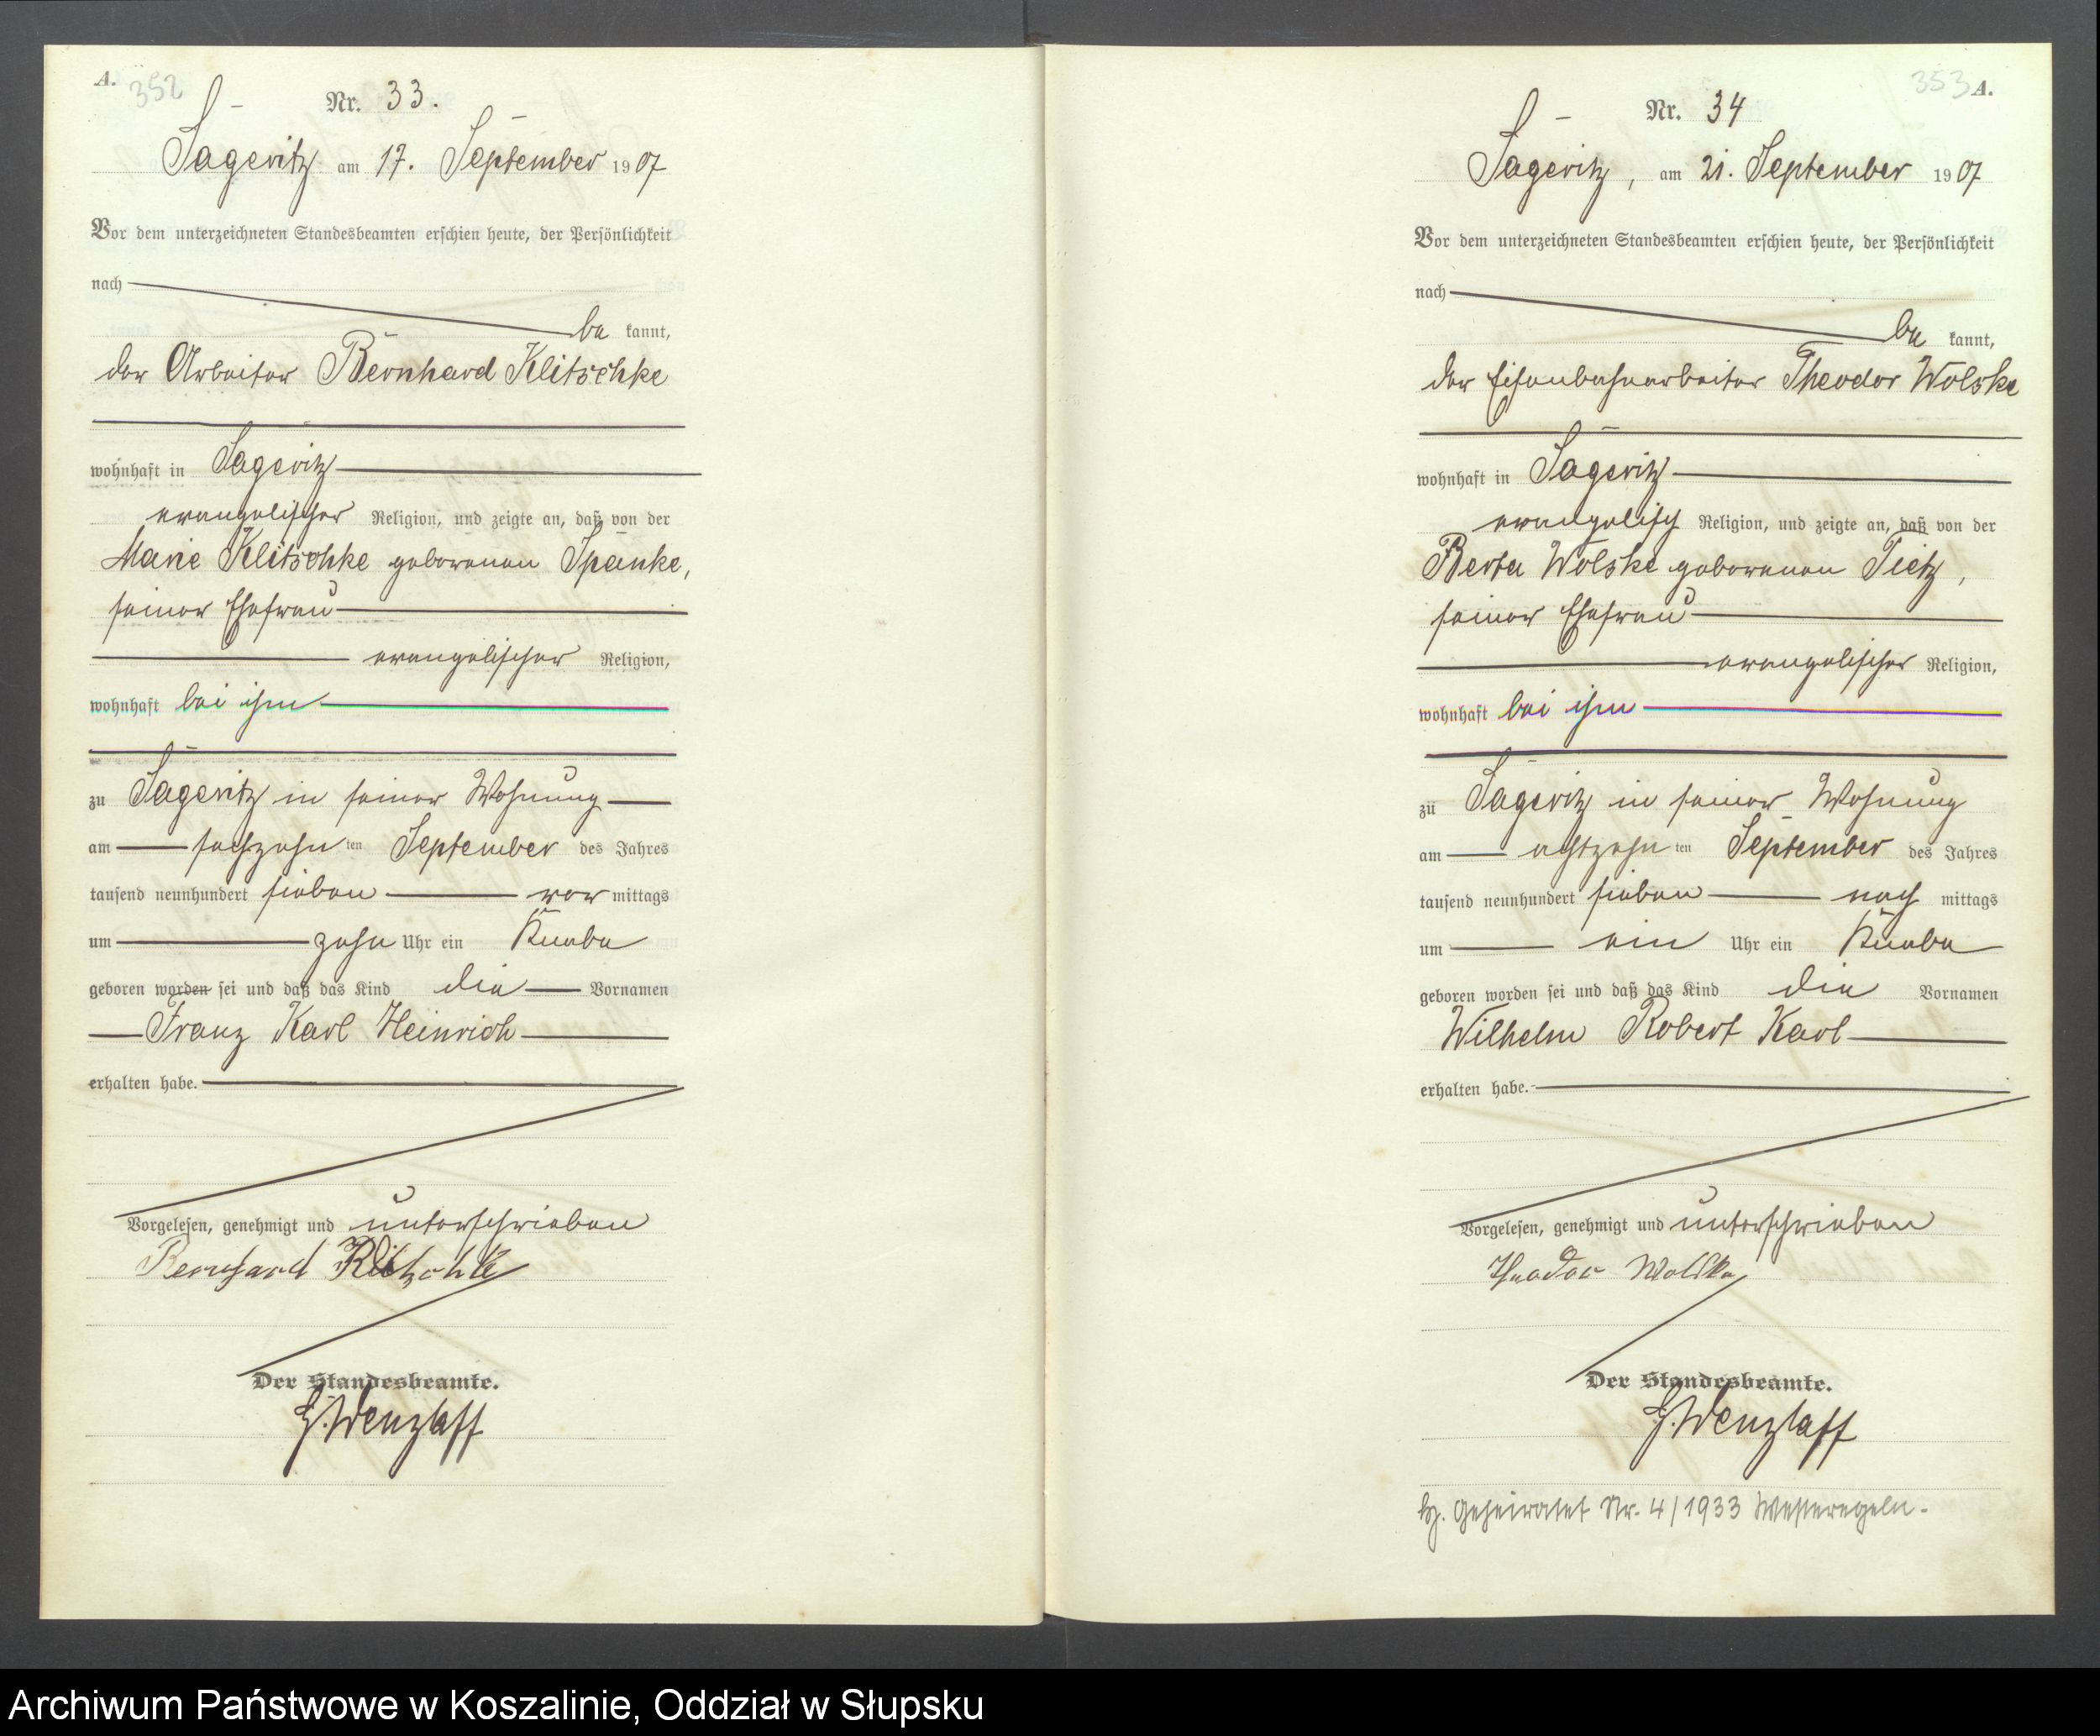 A.
352
Nr. 33.
Sageritz am 17. September 1907
Vor dem unterzeichneten Standesbeamten erschien heute, der Persönlichkeit
nach
be kannt,
der Arbeiter Bernhard Klitschke
wohnhaft in Sageritz
evangelischer Religion, und zeigte an, daß von der
Marie Klitschke geborenen Spänke,
seiner Ehefrau
evangelischer Religion,
wohnhaft bei ihm
zu Sageritz in seiner Wohnung
am sechzehn ten September des Jahres
tausend neunhundert sieben vor mittags
um zehn Uhr ein Knabe
geboren worden sei und daß das Kind die Vornamen
Franz Karl Heinrich
erhalten habe.
Vorgelesen, genehmigt und unterschrieben
Bernhard Klitschke
Der Standesbeamte.
Wenzlaff
353 A.
Nr. 34
Sageritz, am 21. September 1907
Vor dem unterzeichneten Standesbeamten erschien heute, der Persönlichkeit
nach
be kannt,
der Eisenbahnarbeiter Theodor Wolske
wohnhaft in Sageritz
evangelisch Religion, und zeigte an, daß von der
Berta Wolske geborenen Tietz,
seiner Ehefrau
evangelischer Religion,
wohnhaft bei ihm
zu Sageritz in seiner Wohnung
am achtzehn ten September des Jahres
tausend neunhundert sieben nach mittags
um ein Uhr ein Knabe
geboren worden sei und daß das Kind die Vornamen
Wilhelm Robert Karl
erhalten habe.
Vorgelesen, genehmigt und unterschrieben
Theodor Wolske
Der Standesbeamte.
Wenzlaff
geheiratet Nr. 4/1933 Westeregeln.
Archiwum Państwowe w Koszalinie, Oddział w Słupsku